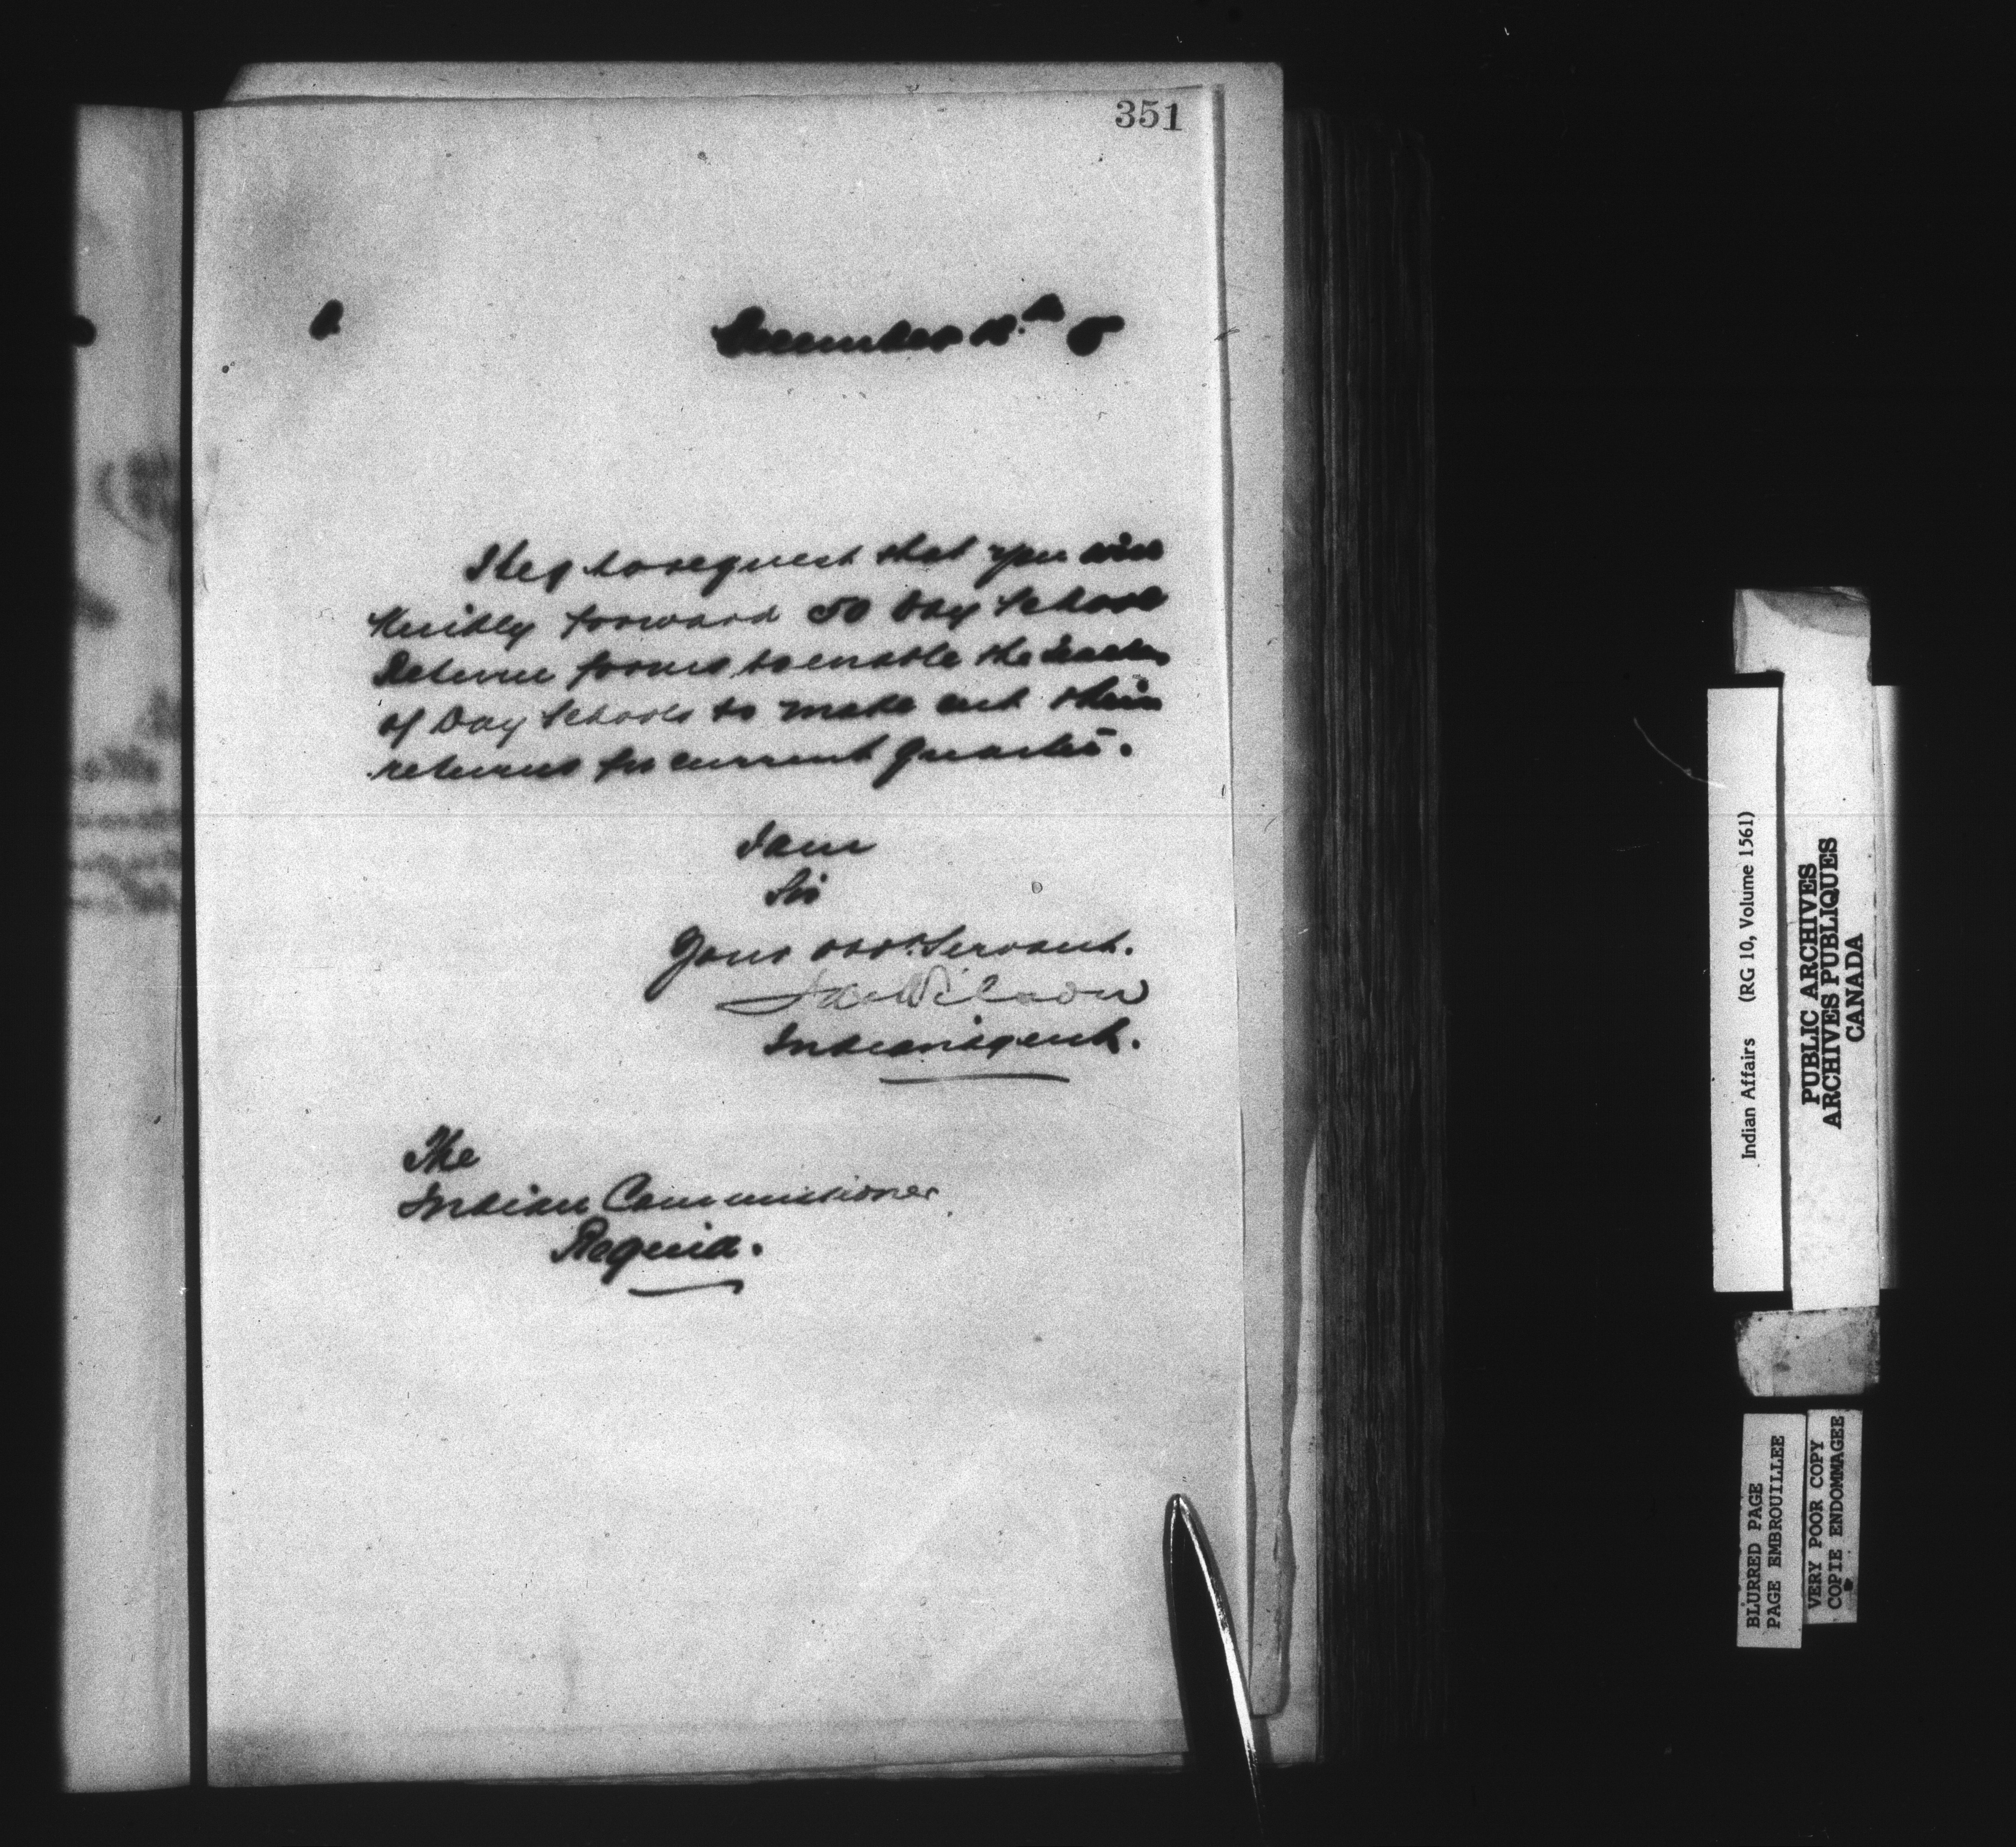 351
December 12th 5
I beg to request that you will
kindly forward 50 Day School
Return forms to enable the teachers
of Day Schools to make out their
returns for current quarter.
I am
Sir
Your obdt. Servant.
Wilson
Indian Agent.
The
Indian Commissioner
Regina.
Indian Affairs (RG 10, Volume 1561)
PUBLIC ARCHIVES
ARCHIVES PUBLIQUES
CANADA
BLURRED PAGE
PAGE EMBROUILLEE
VERY POOR COPY
COPIE ENDOMMAGEE